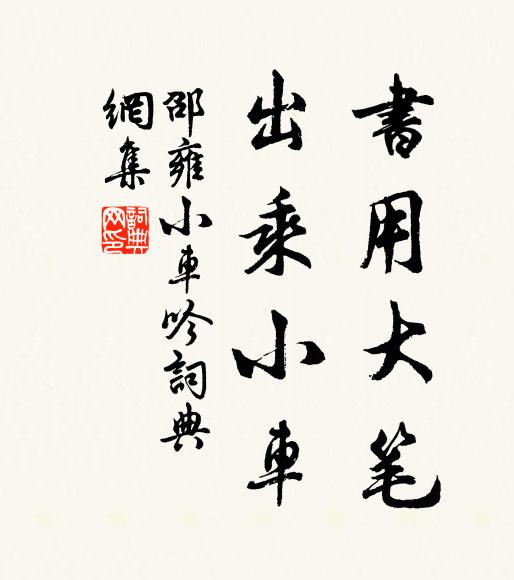 書用大笔
出乘小車
邵雍小車吟詞典
網集
詞典网印